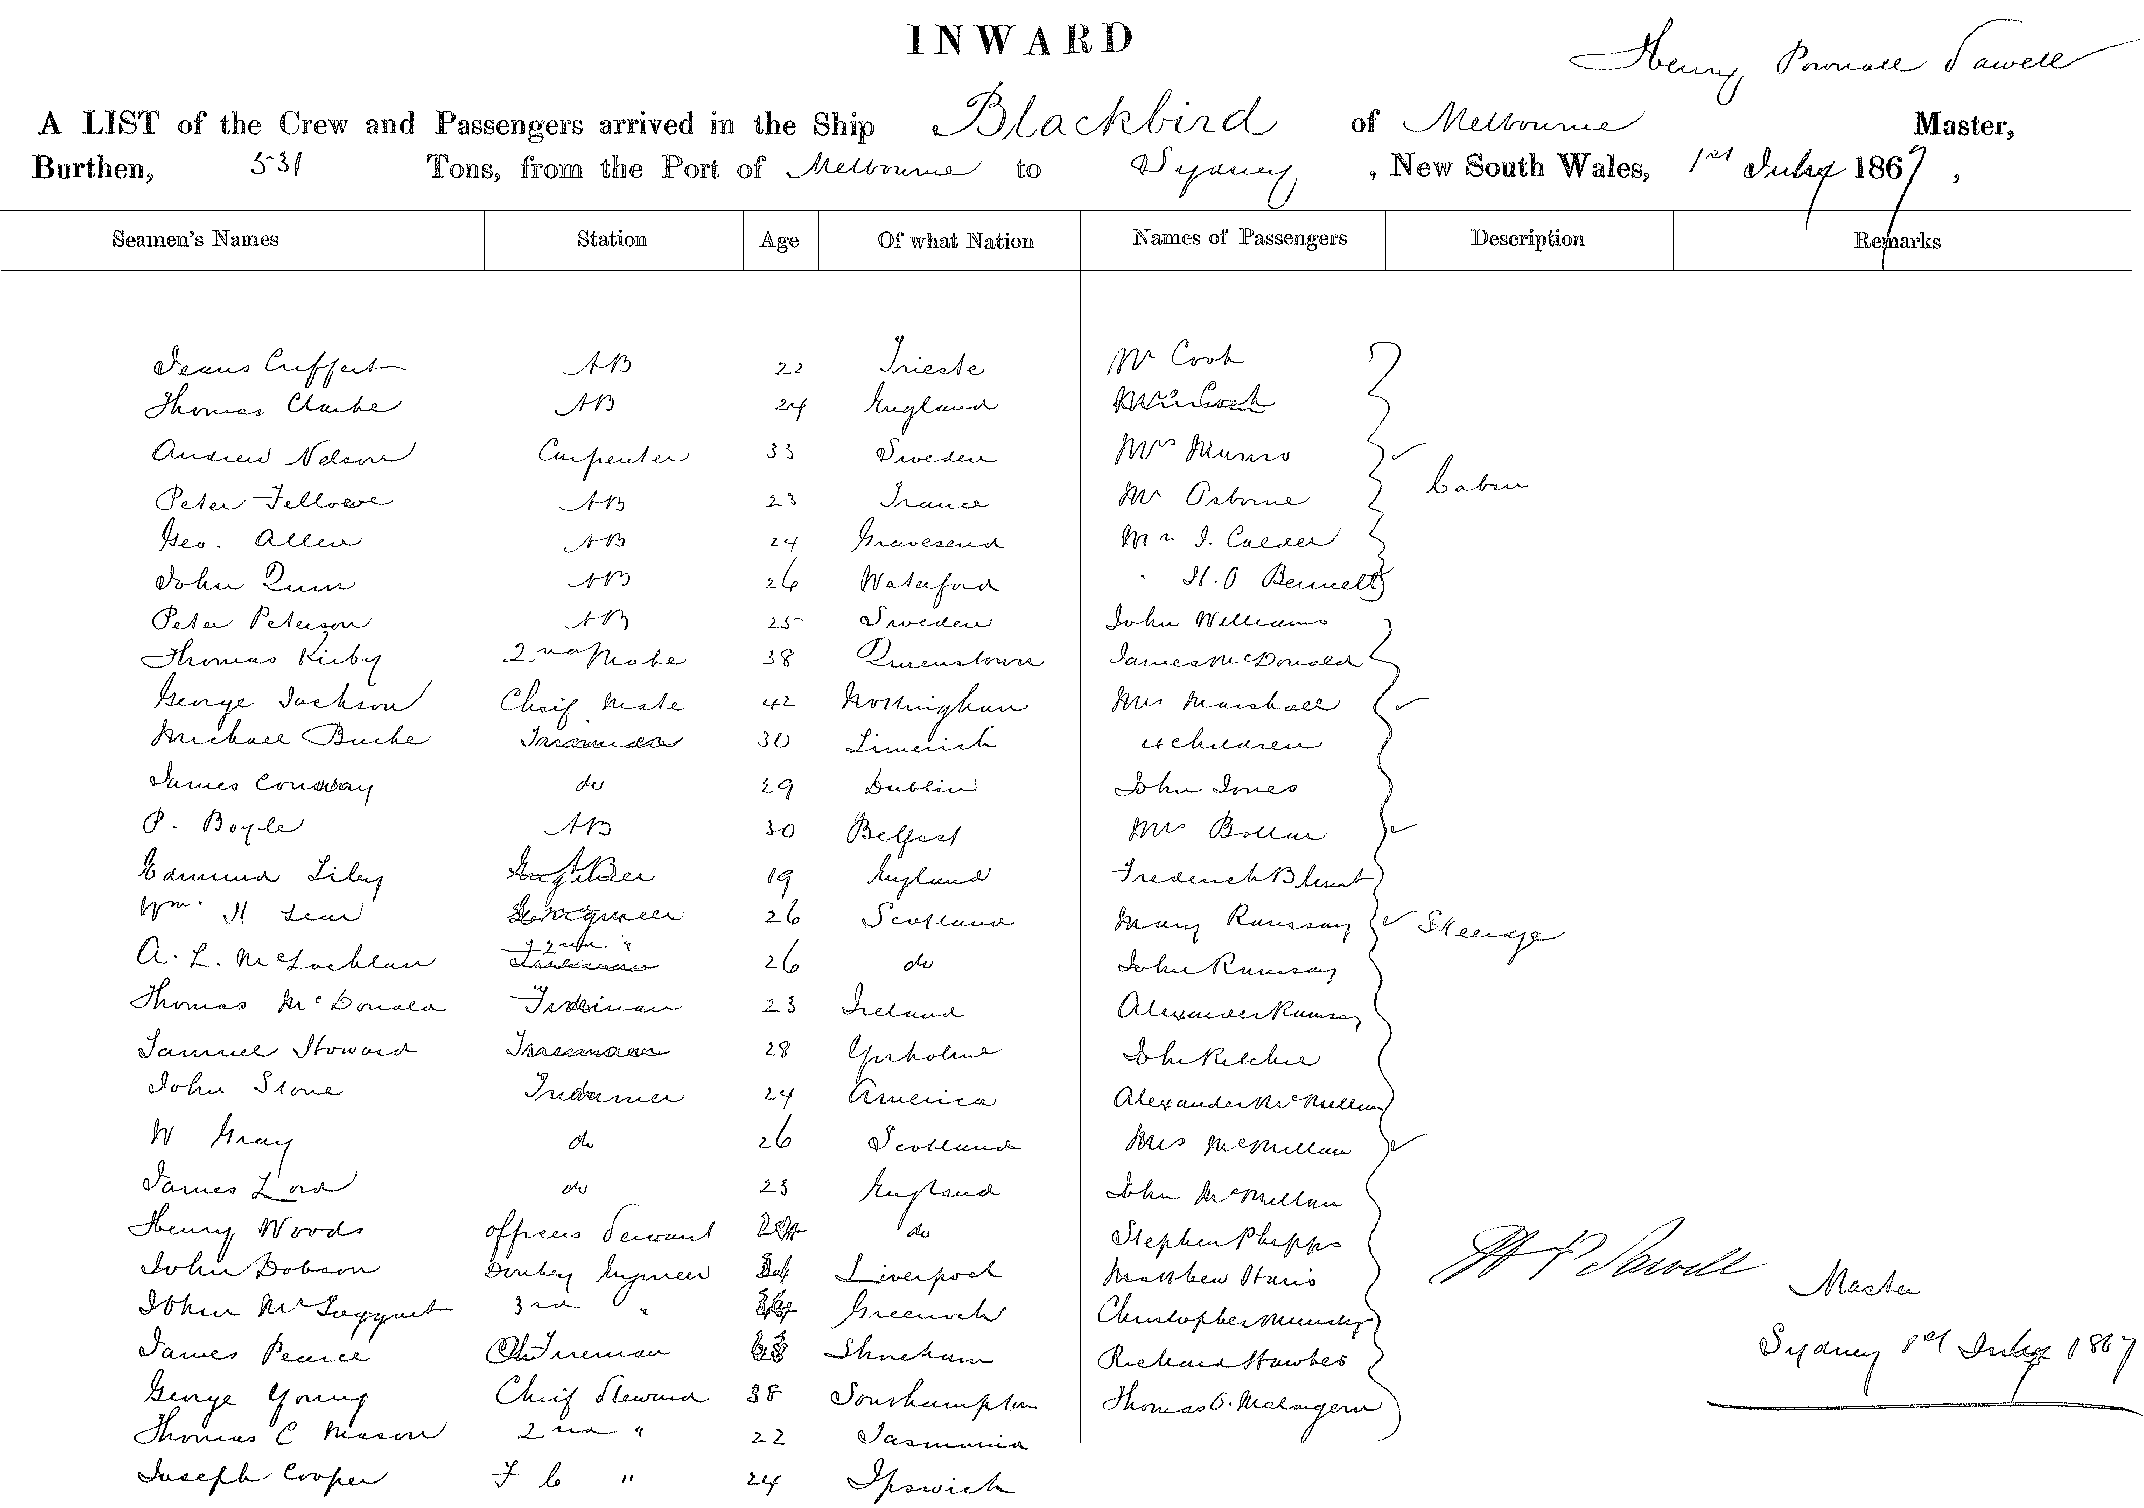 INWARD
Henry Pownall Sawell
A LIST of the Crew and Passengers arrived in the Ship Blackbird of Melbourne Master,
Burthen, 531 Tons, from the Port of Melbourne to Sydney, New South Wales, 1st July 1867,
Seamen's Names Station Age Of what Nation Names of Passengers Description Remarks
AB 22 Trieste Mr Cook
Thomas Clarke AB 24 England
Andrew Nelson Carpenter 33 Sweden Mrs Munro
Cabin
Peter Fellowe AB 23 France Mr Osborne
Geo. Allen AB 24 Gravesend J. Calder
John Quin AB 26 Waterford " H. O Bennett
Peter Peterson AB 25 Sweden John Williams
Thomas Kirby 2nd Mate 38 Queenstown James McDonald
George Jackson Cheif Mate 42 Nottingham Mrs Marshall
Michael Burke 30 Limerick 4 children
James Conway do 29 Dublin John Jones
P. Boyle AB 30 Belfast Mrs
Edmund Liley 19 England Frederick Blunt
Wm. H Lear 26 Scotland Mary Ramsay
Steerage
A. L. McLochlan 26 do John Ramsay
Thomas McDonald 23 Ireland Alexander Ramsay
Samuel Howard 28 John Ritchie
John Stone 24 America Alexander McMillan
W Gray do 26 Scotland Mrs McMillan
James Lord do 23 England John McMillan
Henry Woods officers Servant do Stephen Phipps
John Dobson Donkey Engineer Liverpool Matthew Haris
John McTaggart 3rd " Greenock Christopher
James Pearce Ch Fireman Shoreham Richard Hawkes
George Young Cheif Steward 38 Southampton Thomas
Thomas C Mason 2nd " 22 Tasmania
Joseph Cooper F C " 24 Ipswich
H P Sawell
Master
Sydney 1st July 1867